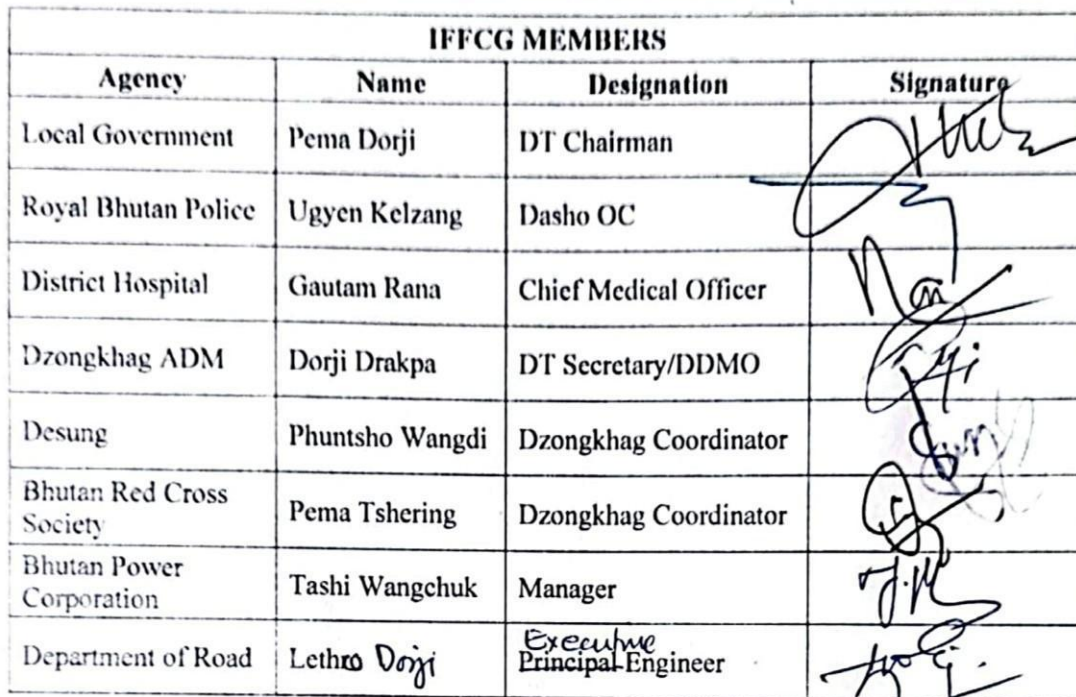 IFFCG MEMBERS
Agency Name Designation Signature
Local Government Pema Dorji DT Chairman
Royal Bhutan Police Ugyen Kelzang Dasho OC
District Hospital Gautam Rana Chief Medical Officer
Dzongkhag ADM Dorji Drakpa DT Secretary/DDMO
Desung Phuntsho Wangdi Dzongkhag Coordinator
Bhutan Red Cross
Society Pema Tshering Dzongkhag Coordinator
Bhutan Power
Corporation Tashi Wangchuk Manager
Executive
Department of Road Lethro Dorji Principal Engineer